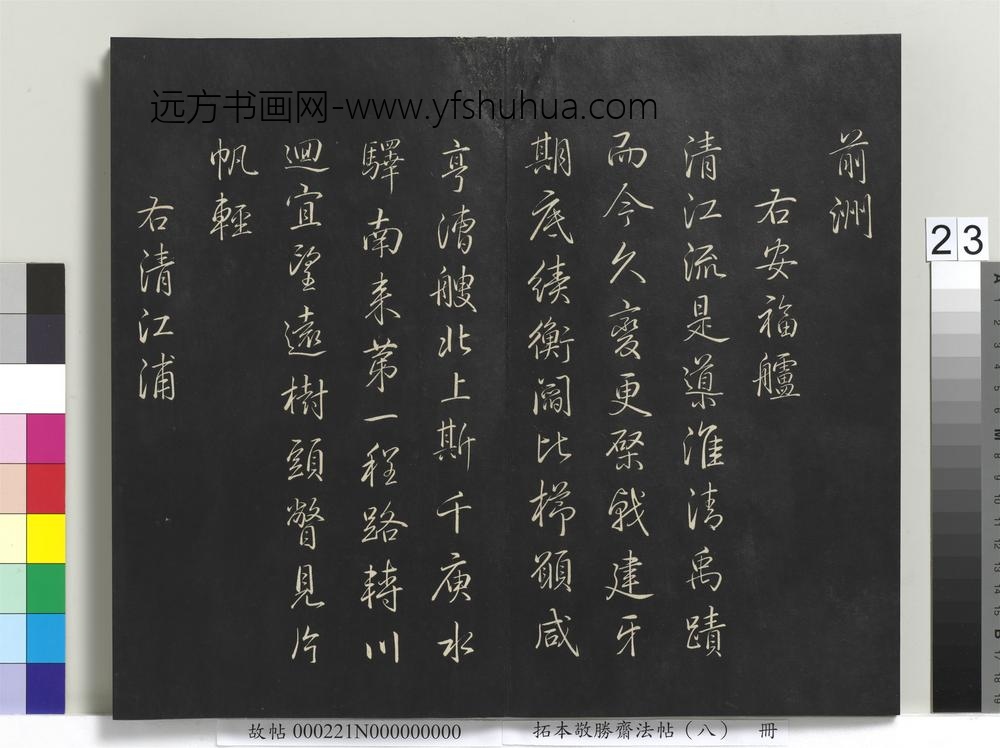 远方书画网-www.yfshuhua.com
前洲
右安福艫
清江流是導淮清禹蹟
而今久變更棨戟建牙
期底績衡閻比櫛願咸
亨漕艘北上斯千庚水
驛南来第一程路轉川
迴宜望遠樹頭瞥見片
帆輕
右清江浦
23
故帖 000221N000000000
拓本敬勝齋法帖（八） 冊